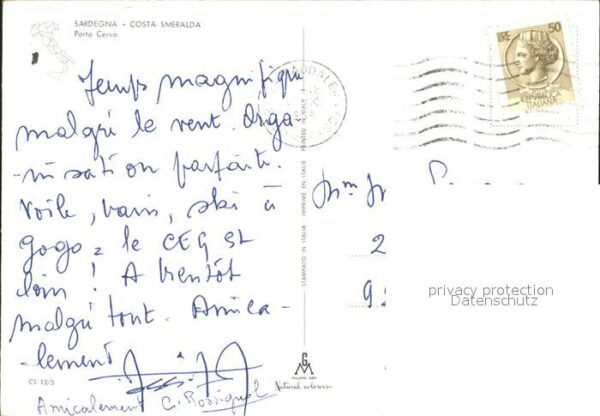 SARDEGNA - COSTA SMERALDA
Porto Cervo
Temps magnifique
malgré le vent. Orga-
-nisation parfaite.
Voile, bain, ski à
gogo, le CEG est
loin ! A bientôt
malgré tout. Amica-
-lement
Amicalement C. Rossignol
CS 13/3
STAMPATO IN ITALIA IMPRIMÉ EN ITALIE PRINTED IN ITALY
MILANO
Natural colour
LIRE 50
REPUBBLICA
ITALIANA
MADDALENA
2
9
privacy protection
Datenschutz